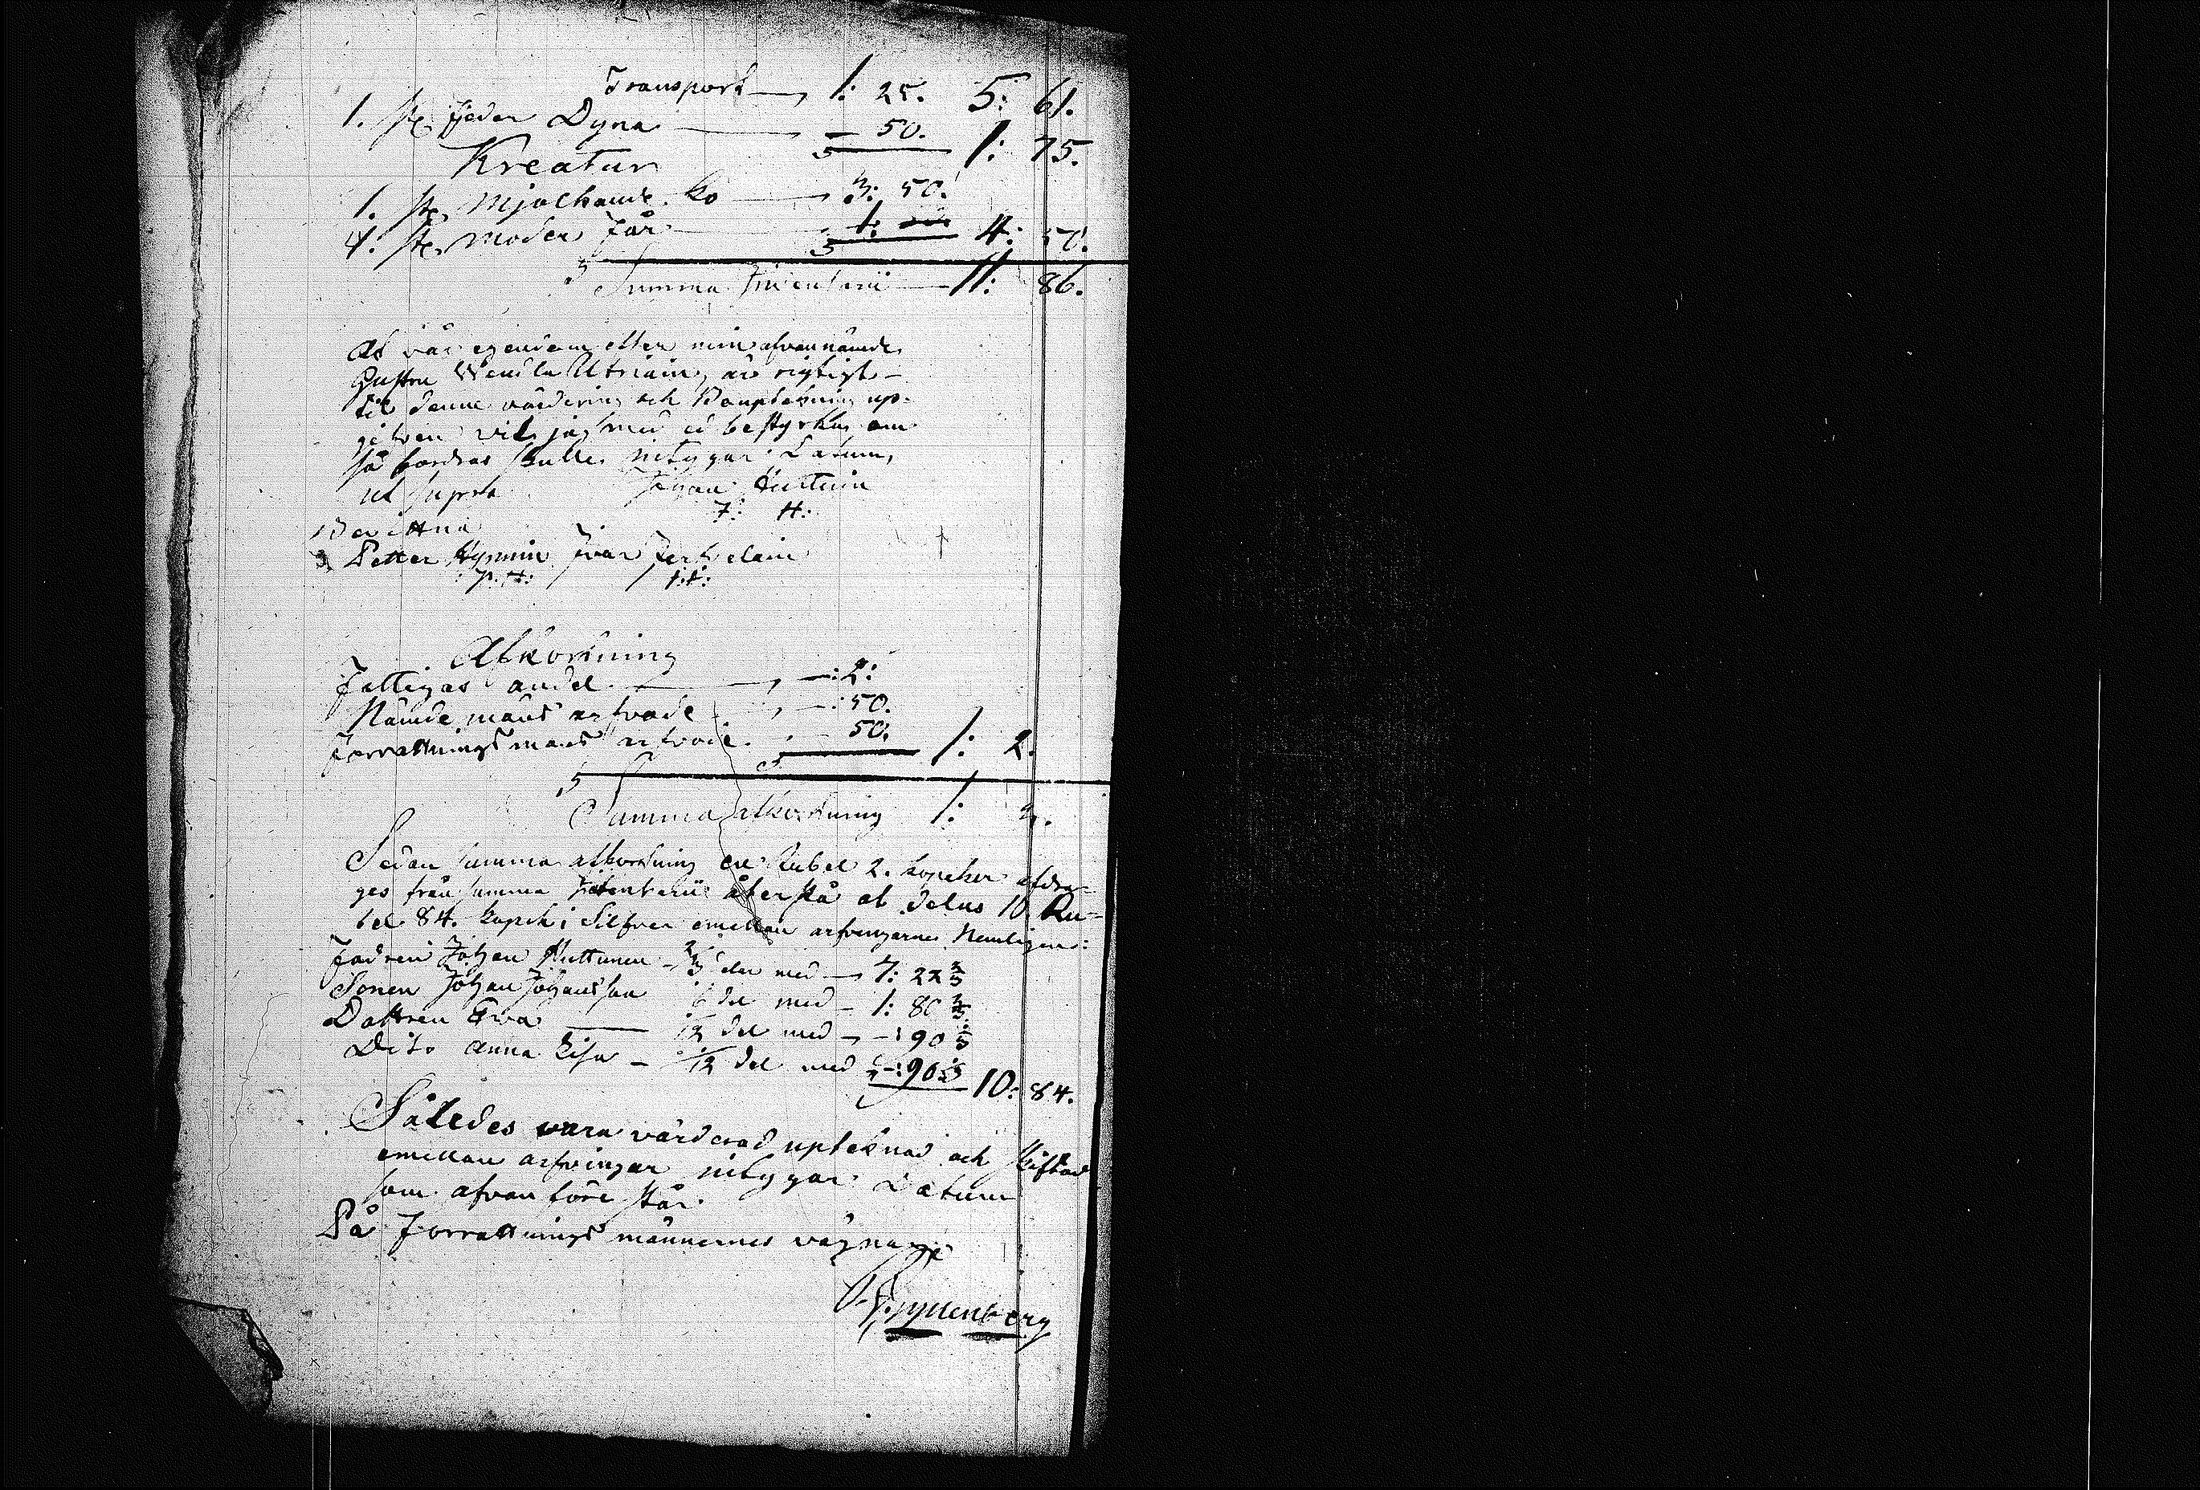 Transport — 1: 25. 5: 61.
1. st. fjeder Dyna — — 50. 1: 75.
Kreatur
1. st. Mjølkande Ko — 3: 50.
4. st. Moder Får — 1: 4: 50.
Summa Inventarii — 11: 86.
At vår egendom efter min afvannämde
Hustru Wendla Utriain, är rigtigt
till denne värdering och Bouptekning up-
gifven vil jag med ed bestyrka om
så fordras skulle, intygar. Datum,
ut supra Johan Huttuin
J: H:
Bevittna
Petter Hypmin Ivar Terkelain
P: H: I: T:
Afkortning
Fattigas andel — —: 2:
Nämde mans arfvode — —: 50.
Förrättnings mans arfvode. — 50. 1: 2.
Summa afkortning 1: 2.
Sedan summa afkortning en Rubel 2. kopeker afdra-
ges från summa Inventarii återstå at delas 10 Ru-
bel 84. kopek i Silfver emellan arfvingarne Nemligen:
Fadren Johan Huttunen — 2/3 del med — 7: 22 2/3
Sonen Johan Johansson 1/6 del med — 1: 80 2/3
Dottren Eva — 1/12 del med — —: 90 1/3
Dito Anna Lisa — 1/12 del med —: 90 1/3 10: 84.
Således vara värderad upteknad och skiftad
emellan arfvingar intygar Datum
som afvan före står.
På Förrättnings männernes vägnar